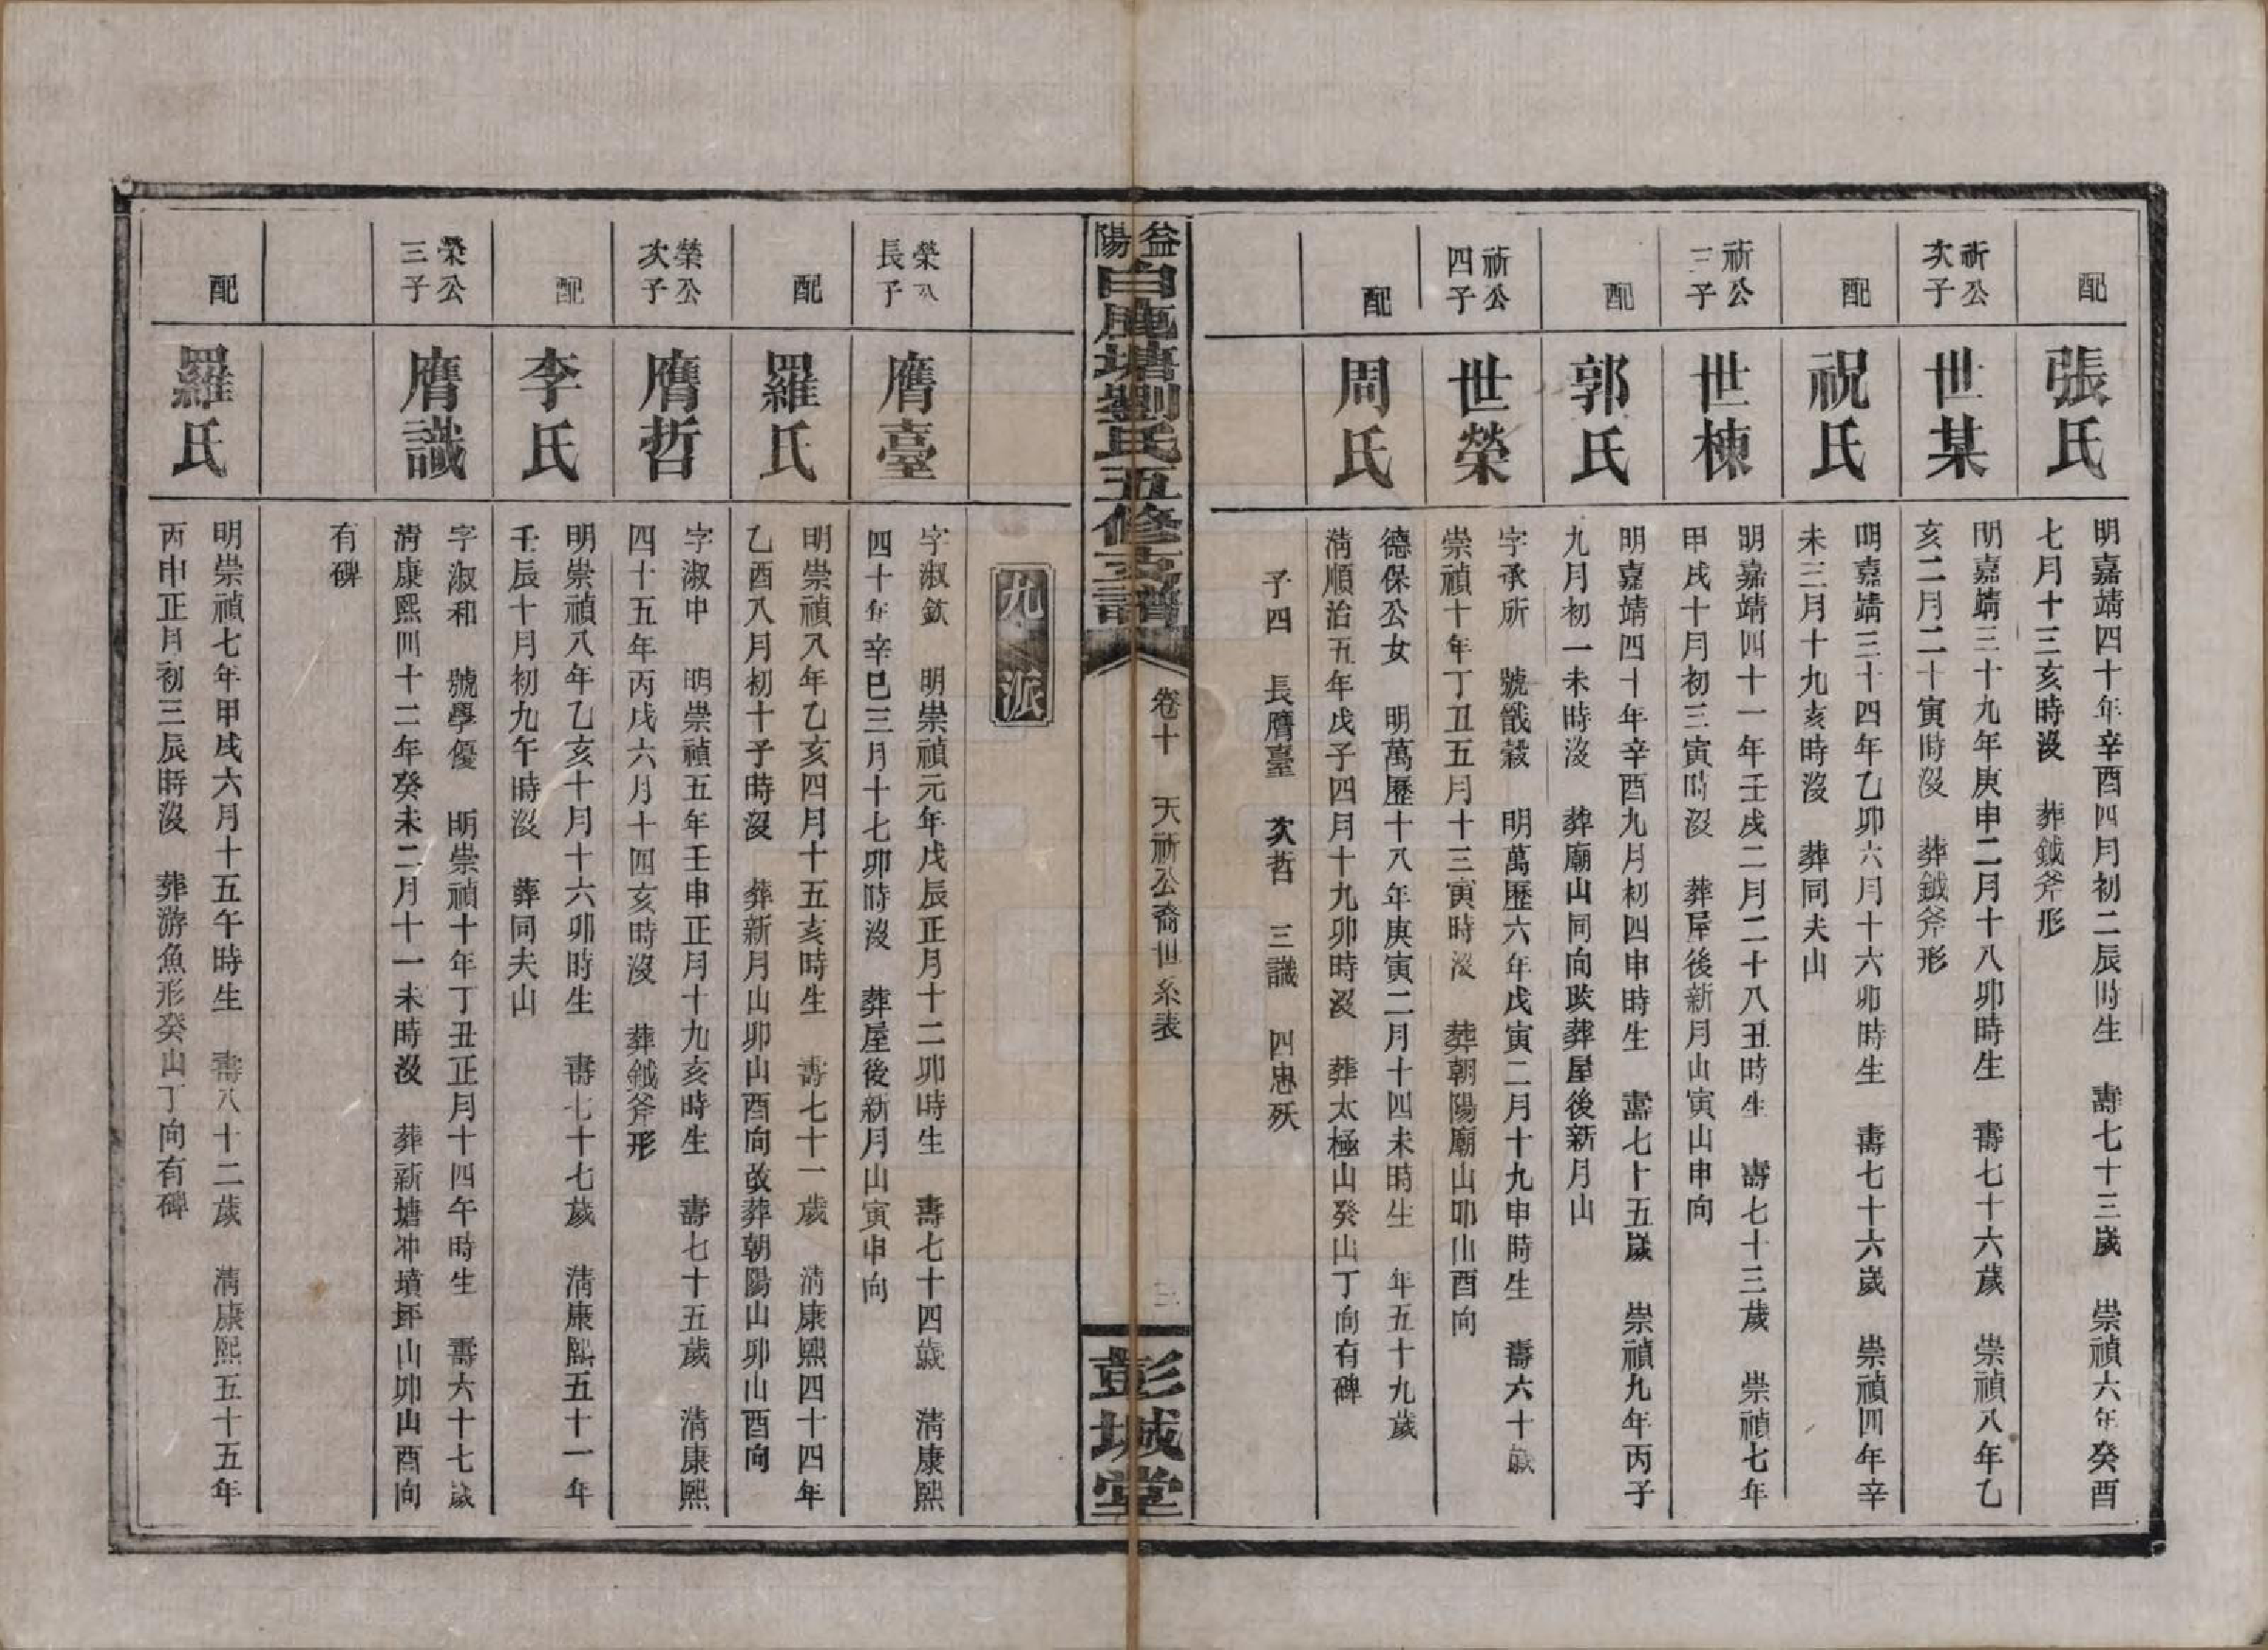 配
張氏
明嘉靖四十年辛酉四月初二辰時生　壽七十三歲　崇禎六年癸酉
七月十三亥時沒　葬鉞斧形
祈公
次子
世某
明嘉靖三十九年庚申二月十八卯時生　壽七十六歲　崇禎八年乙
亥二月二十寅時沒　葬鉞斧形
配
祝氏
明嘉靖三十四年乙卯六月十六卯時生　壽七十六歲　崇禎四年辛
未三月十九亥時沒　葬同夫山
祈公
三子
世棟
明嘉靖四十一年壬戌二月二十八丑時生　壽七十三歲　崇禎七年
甲戌十月初三寅時沒　葬屋後新月山寅山申向
配
郭氏
明嘉靖四十年辛酉九月初四申時生　壽七十五歲　崇禎九年丙子
九月初一未時沒　葬廟山同向改葬屋後新月山
祈公
四子
世榮
字承所　號戩穀　明萬歷六年戊寅二月十九申時生　壽六十歲
崇禎十年丁丑五月十三寅時沒　葬朝陽廟山卯山酉向
配
周氏
德保公女　明萬歷十八年庚寅二月十四未時生　年五十九歲
清順治五年戊子四月十九卯時沒　葬太極山癸山丁向有碑
子四　長膺臺　次哲　三識　四忠殀
益陽白鹿塘劉氏五修支譜
卷十　天祈公裔世系表
三
彭城堂
九派
榮公
長子
膺臺
字淑欽　明崇禎元年戊辰正月十二卯時生　壽七十四歲　清康熙
四十年辛巳三月十七卯時沒　葬屋後新月山寅申向
配
羅氏
明崇禎八年乙亥四月十五亥時生　壽七十一歲　清康熙四十四年
乙酉八月初十子時沒　葬新月山卯山酉向改葬朝陽山卯山酉向
榮公
次子
膺哲
字淑中　明崇禎五年壬申正月十九亥時生　壽七十五歲　清康熙
四十五年丙戌六月十四亥時沒　葬鉞斧形
配
李氏
明崇禎八年乙亥十月十六卯時生　壽七十七歲　清康熙五十一年
壬辰十月初九午時沒　葬同夫山
榮公
三子
膺識
字淑和　號學優　明崇禎十年丁丑正月十四午時生　壽六十七歲
清康熙四十二年癸未二月十一未時沒　葬新塘冲墳坪山卯山酉向
有碑
配
羅氏
明崇禎七年甲戌六月十五午時生　壽八十二歲　清康熙五十五年
丙申正月初三辰時沒　葬游魚形癸山丁向有碑